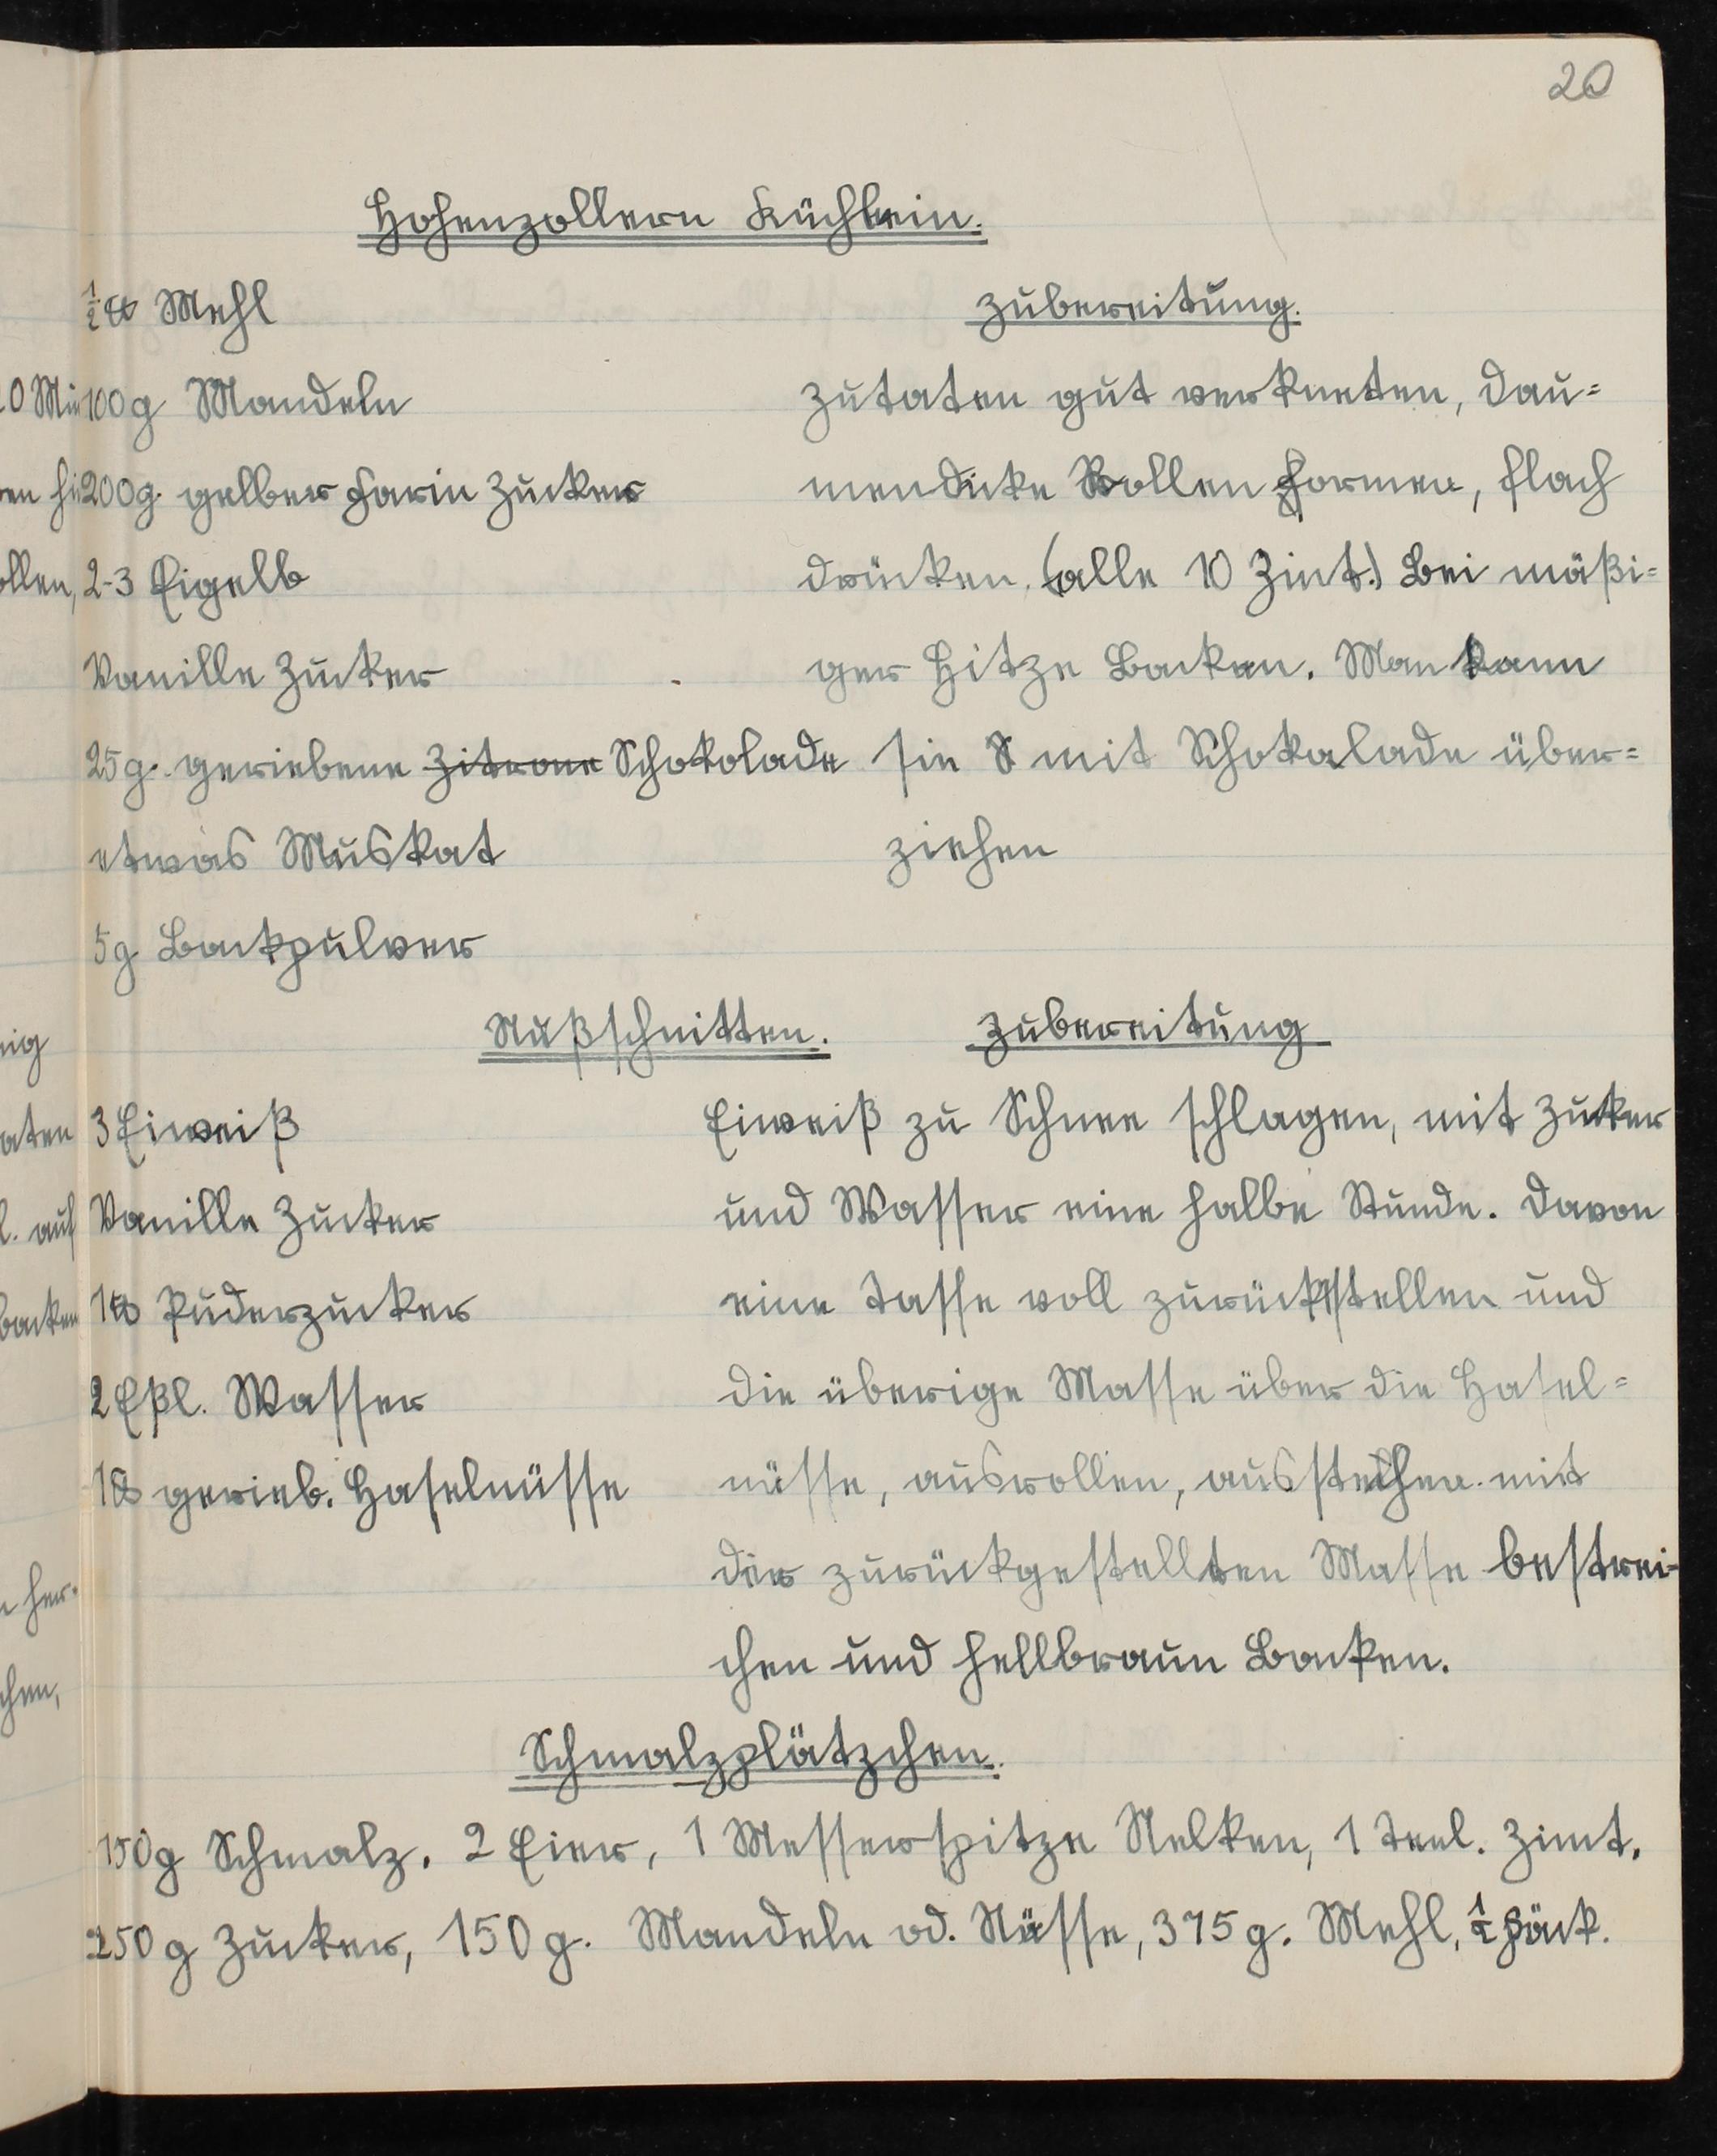 20
Hohenzollern Küchlein.
½ ℔ Mehl
100g Mandeln
200g. gelber Farin Zucker
2-3 Eigelb
Vanille Zucker
25g. geriebene ~~Zitrone~~ Schokolade
etwas Muskat
5g Backpulver
Zubereitung.
Zutaten gut verkneten, dau=
mendicke Rollen formen, flach
drücken. (alle 10 Zmt.) Bei mäßi=
ger Hitze Backen. Man kann
sie mit Schokalade über=
ziehen
Nußschnitten.
3 Eiweiß
Vanille Zucker
1 ℔ Puderzucker
2 Eßl. Wasser
1 ℔ gerieb. Haselnüsse
Zubereitung
Eiweiß zu Schnee schlagen, mit Zucker
und Wasser eine halbe Stunde. Davon
eine Tasse voll zurückstellen und
die überige Masse über die Hasel=
nüsse, ausrollen, ausstechen. mit
der zurückgestellten Masse bestrei-
chen und hellbraun Backen.
Schmalzplätzchen.
150g Schmalz. 2 Eier, 1 Messerspitze Nelken, 1 Teel. Zimt.
250 g Zucker, 150 g. Mandeln od. Nüsse, 375 g. Mehl, ½ Päck.